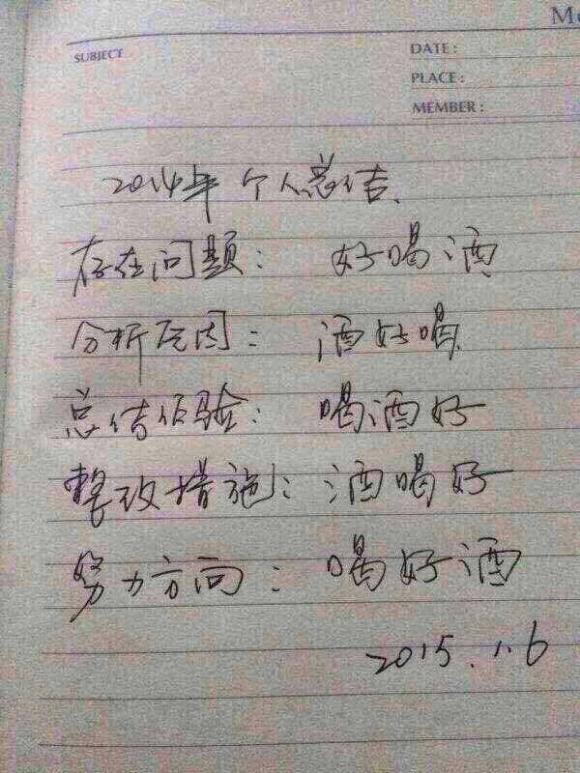 M
SUBJECT
DATE:
PLACE:
MEMBER:
2014年个人总结
存在问题: 好喝酒
分析原因: 酒好喝
总结经验: 喝酒好
整改措施: 酒喝好
努力方向: 喝好酒
2015.1.6